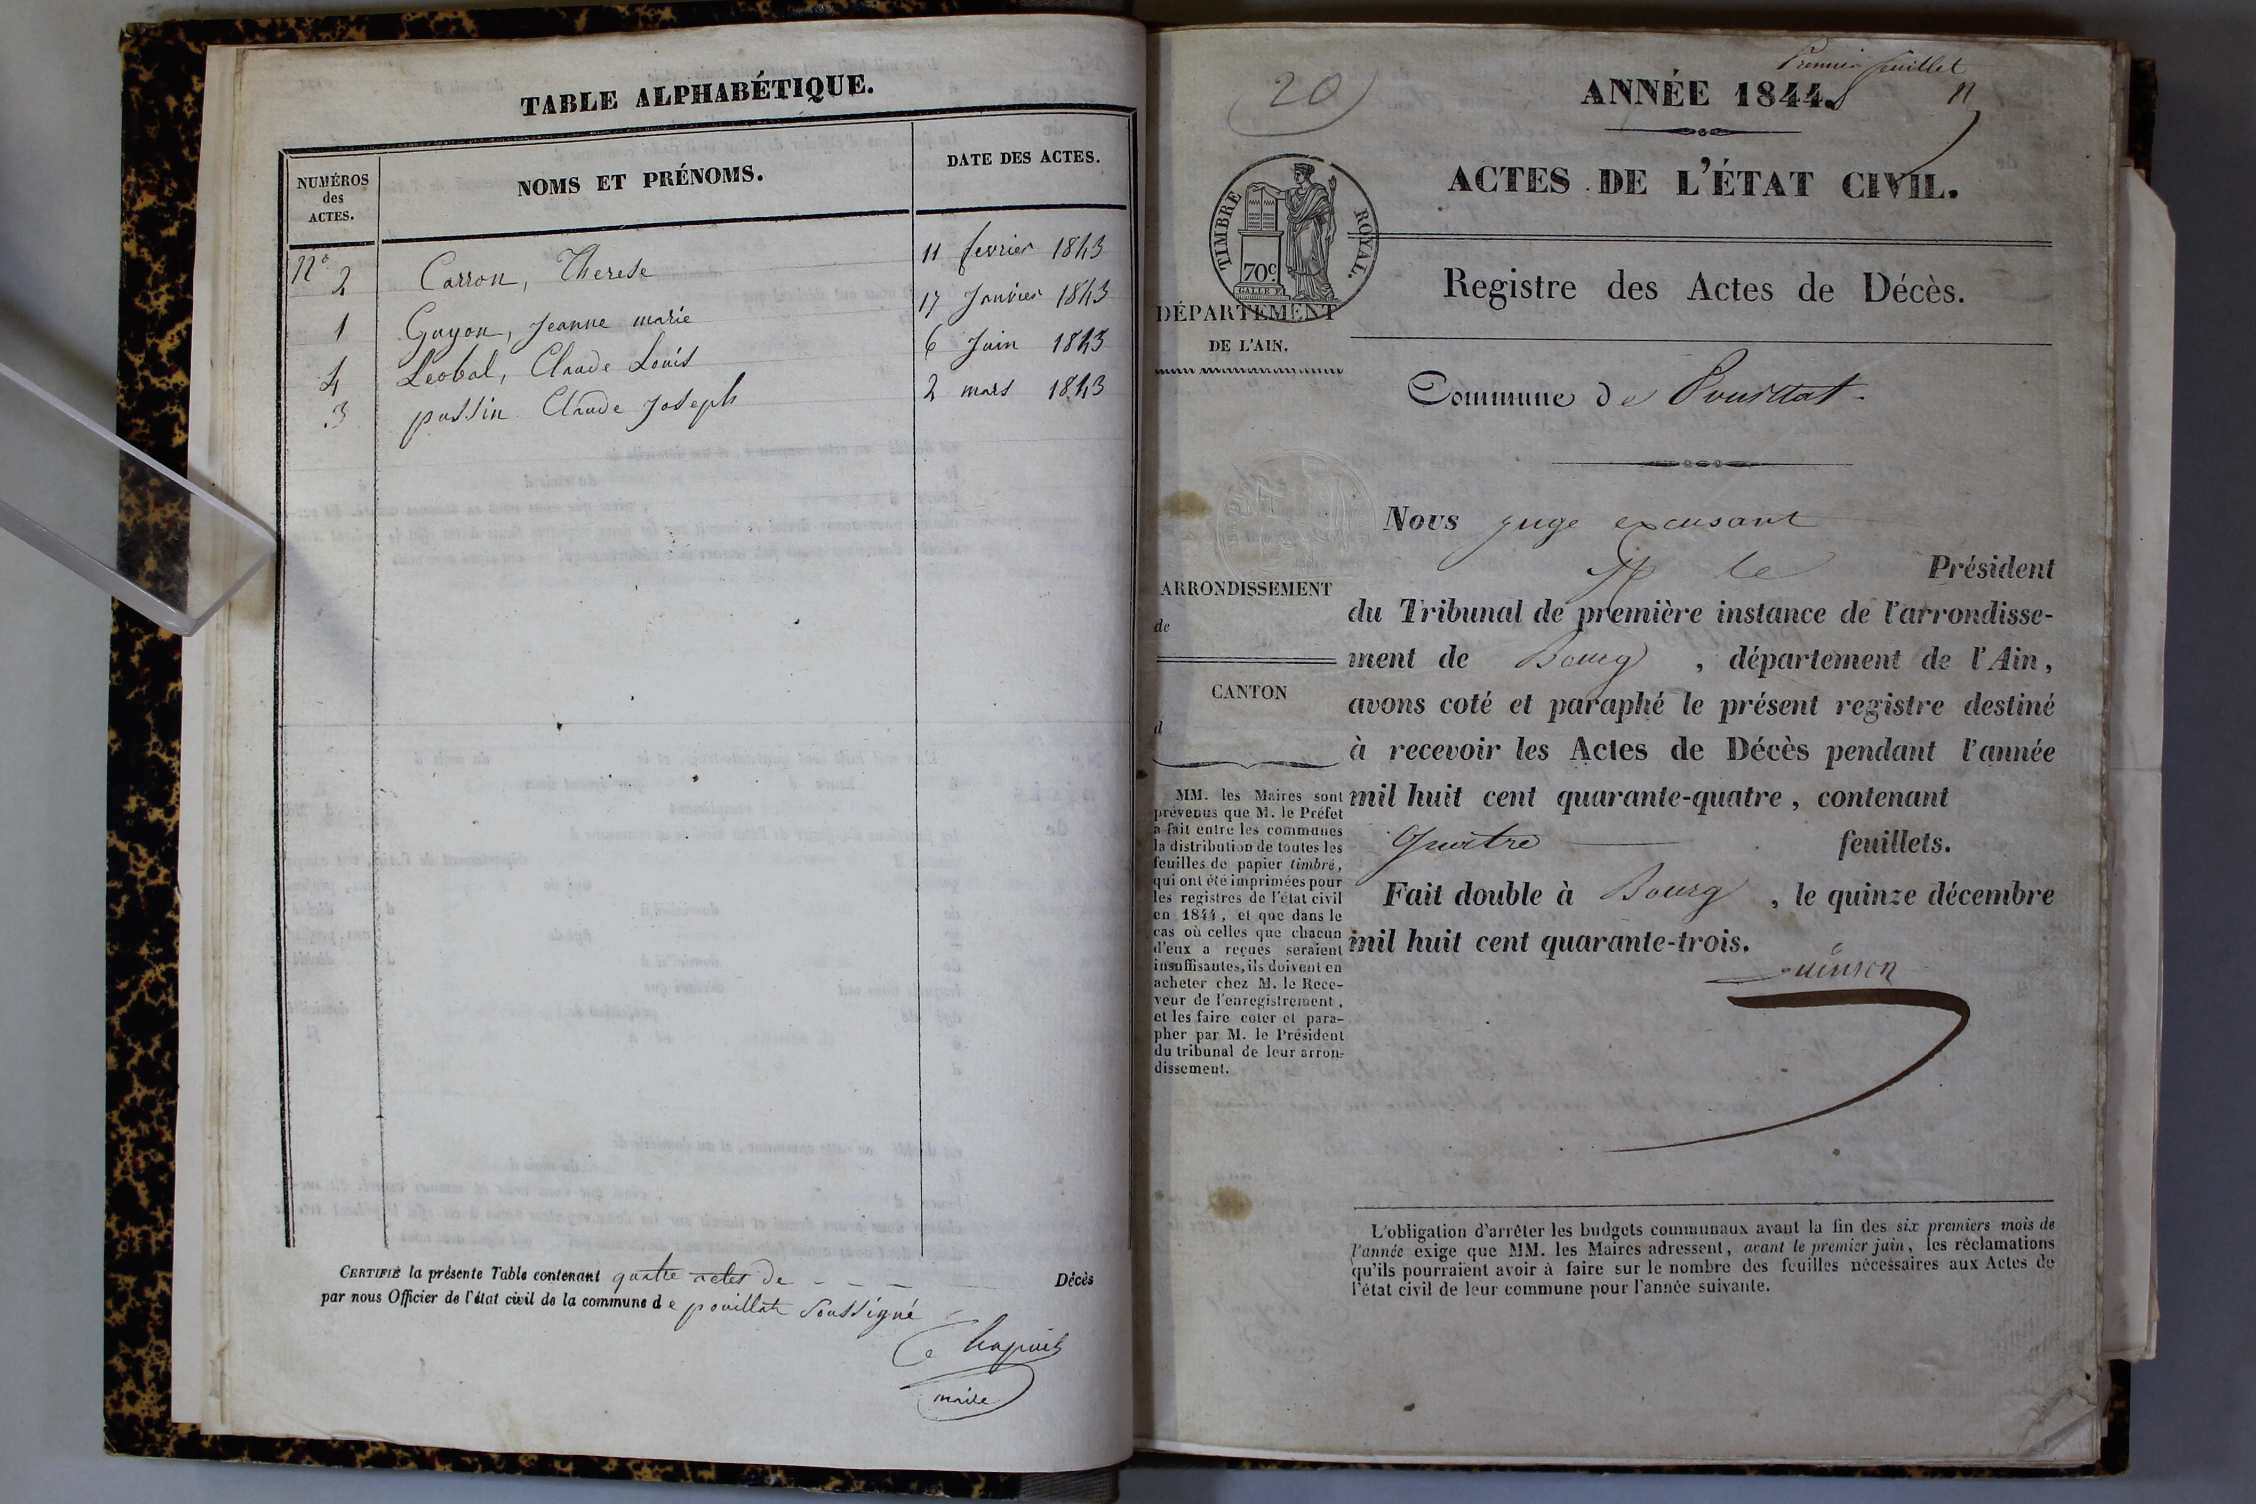 TABLE ALPHABÉTIQUE.
NUMÉROS
des
ACTES.
NOMS ET PRÉNOMS.
DATE DES ACTES.
N° 2 Carron, Therese 11 fevrier 1843
1 Guyon, Jeanne marie 17 Janvier 1843
4 Léobal, Claude Louis 6 Juin 1843
3 possin Claude Joseph 2 mars 1843
CERTIFIÉ la présente Table contenant quatre actes de Décès
par nous Officier de l'état civil de la commune de pouillat soussigné
Chapuis
maire
20
Premier feuillet
ANNÉE 1844.
ACTES DE L'ÉTAT CIVIL.
TIMBRE ROYAL.
70c
DÉPARTEMENT
DE L'AIN.
Registre des Actes de Décès.
Commune de Pouillat.
Nous juge excusant
M le Président
ARRONDISSEMENT
de
CANTON
d
du Tribunal de première instance de l'arrondisse-
ment de Bourg, département de l'Ain,
avons coté et paraphé le présent registre destiné
à recevoir les Actes de Décès pendant l'année
mil huit cent quarante-quatre, contenant
quatre feuillets.
Fait double à Bourg, le quinze décembre
mil huit cent quarante-trois.
MM. les Maires sont
prévenus que M. le Préfet
a fait entre les communes
la distribution de toutes les
feuilles de papier timbré,
qui ont été imprimées pour
les registres de l'état civil
en 1844, et que dans le
cas où celles que chacun
d'eux a reçues seraient
insuffisantes, ils doivent en
acheter chez M. le Rece-
veur de l'enregistrement,
et les faire coter et para-
pher par M. le Président
du tribunal de leur arron-
dissement.
L'obligation d'arrêter les budgets communaux avant la fin des six premiers mois de
l'année exige que MM. les Maires adressent, avant le premier juin, les réclamations
qu'ils pourraient avoir à faire sur le nombre des feuilles nécessaires aux Actes de
l'état civil de leur commune pour l'année suivante.